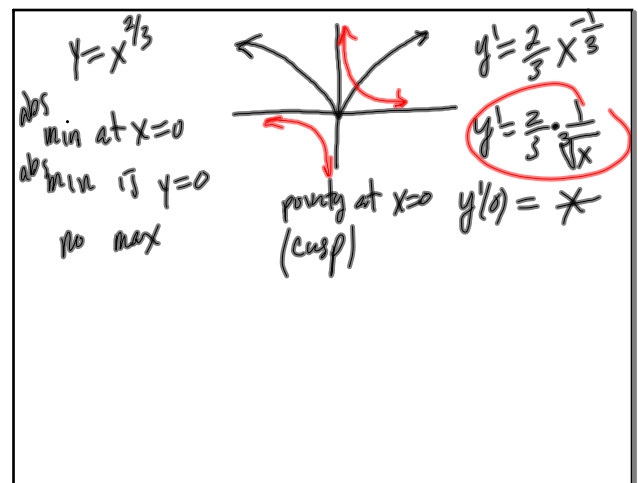 y=x^{2/3}
abs min at x=0
abs min is y=0
no max
pointy at x=0
(cusp)
y'=\frac{2}{3}x^{-\frac{1}{3}}
y'=\frac{2}{3}·\frac{1}{\sqrt[3]{x}}
y'(0)=*